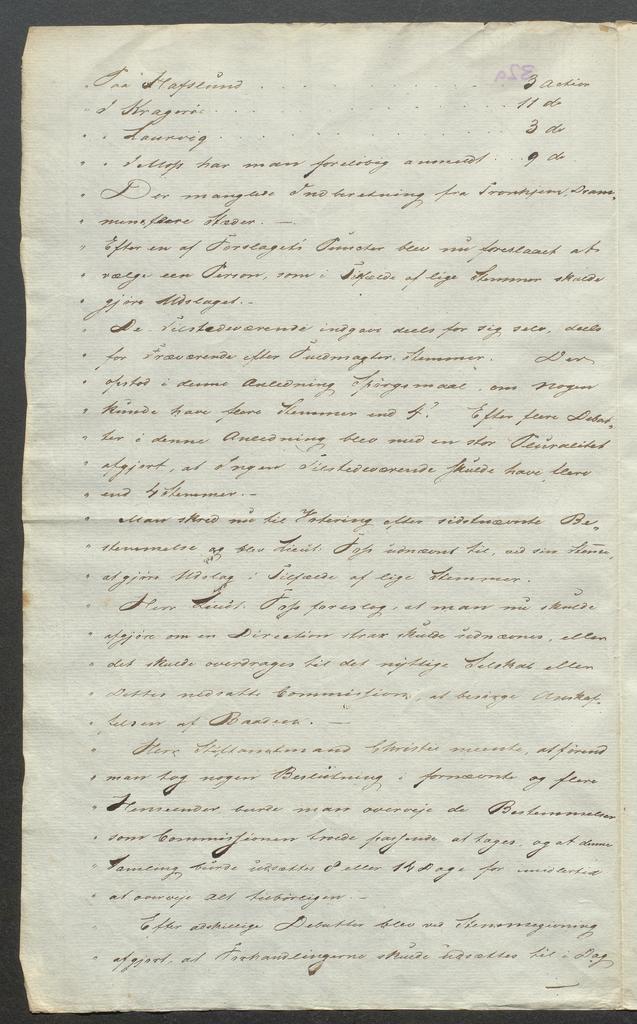 329
" Paa Hafslund . . . . . . . . 3 Actier
" I Kragerøe . . . . . . . . 11 do
" " Laurvig . . . . . . . . 3 do
" " I Moss har man foreløbig anmeldt . 9 do
" Der manglede Indberetning fra Tronhjem, Dram-
" men, flere Stæder. —
" Efter en af Forslagets Puncter blev nu foreslaaet at
" vælge een Person, som i Tilfælde af lige Stemmer skulde
" gjøre Udslaget. —
" De Tilstedeværende indgave deels for sig selv, deels
" for Fraværende efter Fuldmagter, Stemmer. Der
" opstod i denne Anledning Spørgsmaal, om nogen
" kunde have flere Stemmer end 4? Efter flere Debat-
" ter i denne Anledning blev med en stor Pluralitet
" afgjort, at Ingen Tilstedeværende skulde have flere
" end 4 Stemmer. —
" Man skred nu til Votering efter sidstnævnte Be-
" stemmelse og blev Lieut: Foss udnævnt til, ved sin Stemme,
" at gjøre Udslag i Tilfælde af lige Stemmer.
" Herr Lieut. Foss foreslog, at man nu skulde
" afgjøre om en Direction strax skulde udnævnes, eller
" det skulde overdrages til det nyttige Selskab eller
" dettes nedsatte Commission, at besørge Anskaf-
" felsen af Baaden. —
" Herr Stiftamtmand Christie meente, at førend
" man tog nogen Beslutning i fornævnte og flere
" Henseender burde man overveje de Bestemmelser
" som Commissionen troede passende at tages, og at denne
" Samling burde udsættes 8 eller 14 Dage for imidlertid
" at overveje alt tilbørligen. —
" Efter adskillige Debatter blev ved Stemmegivning
" afgjort, at Forhandlingerne skulde udsættes til i Dag